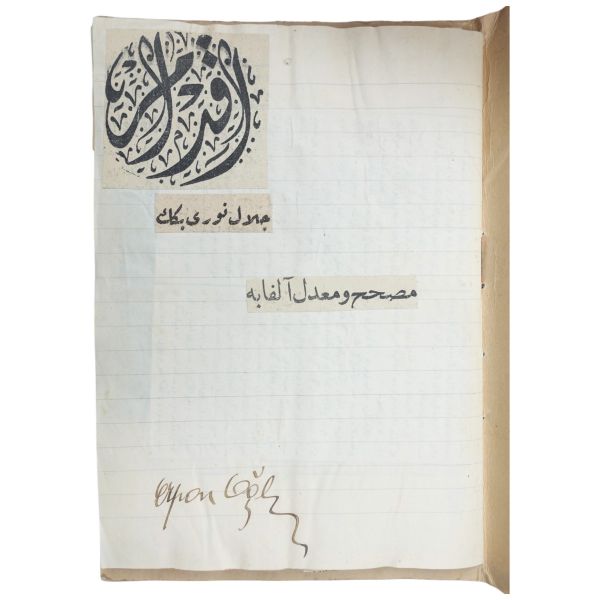 اقدام
جلال نوری بكك
مصحح و معدل آلفابه